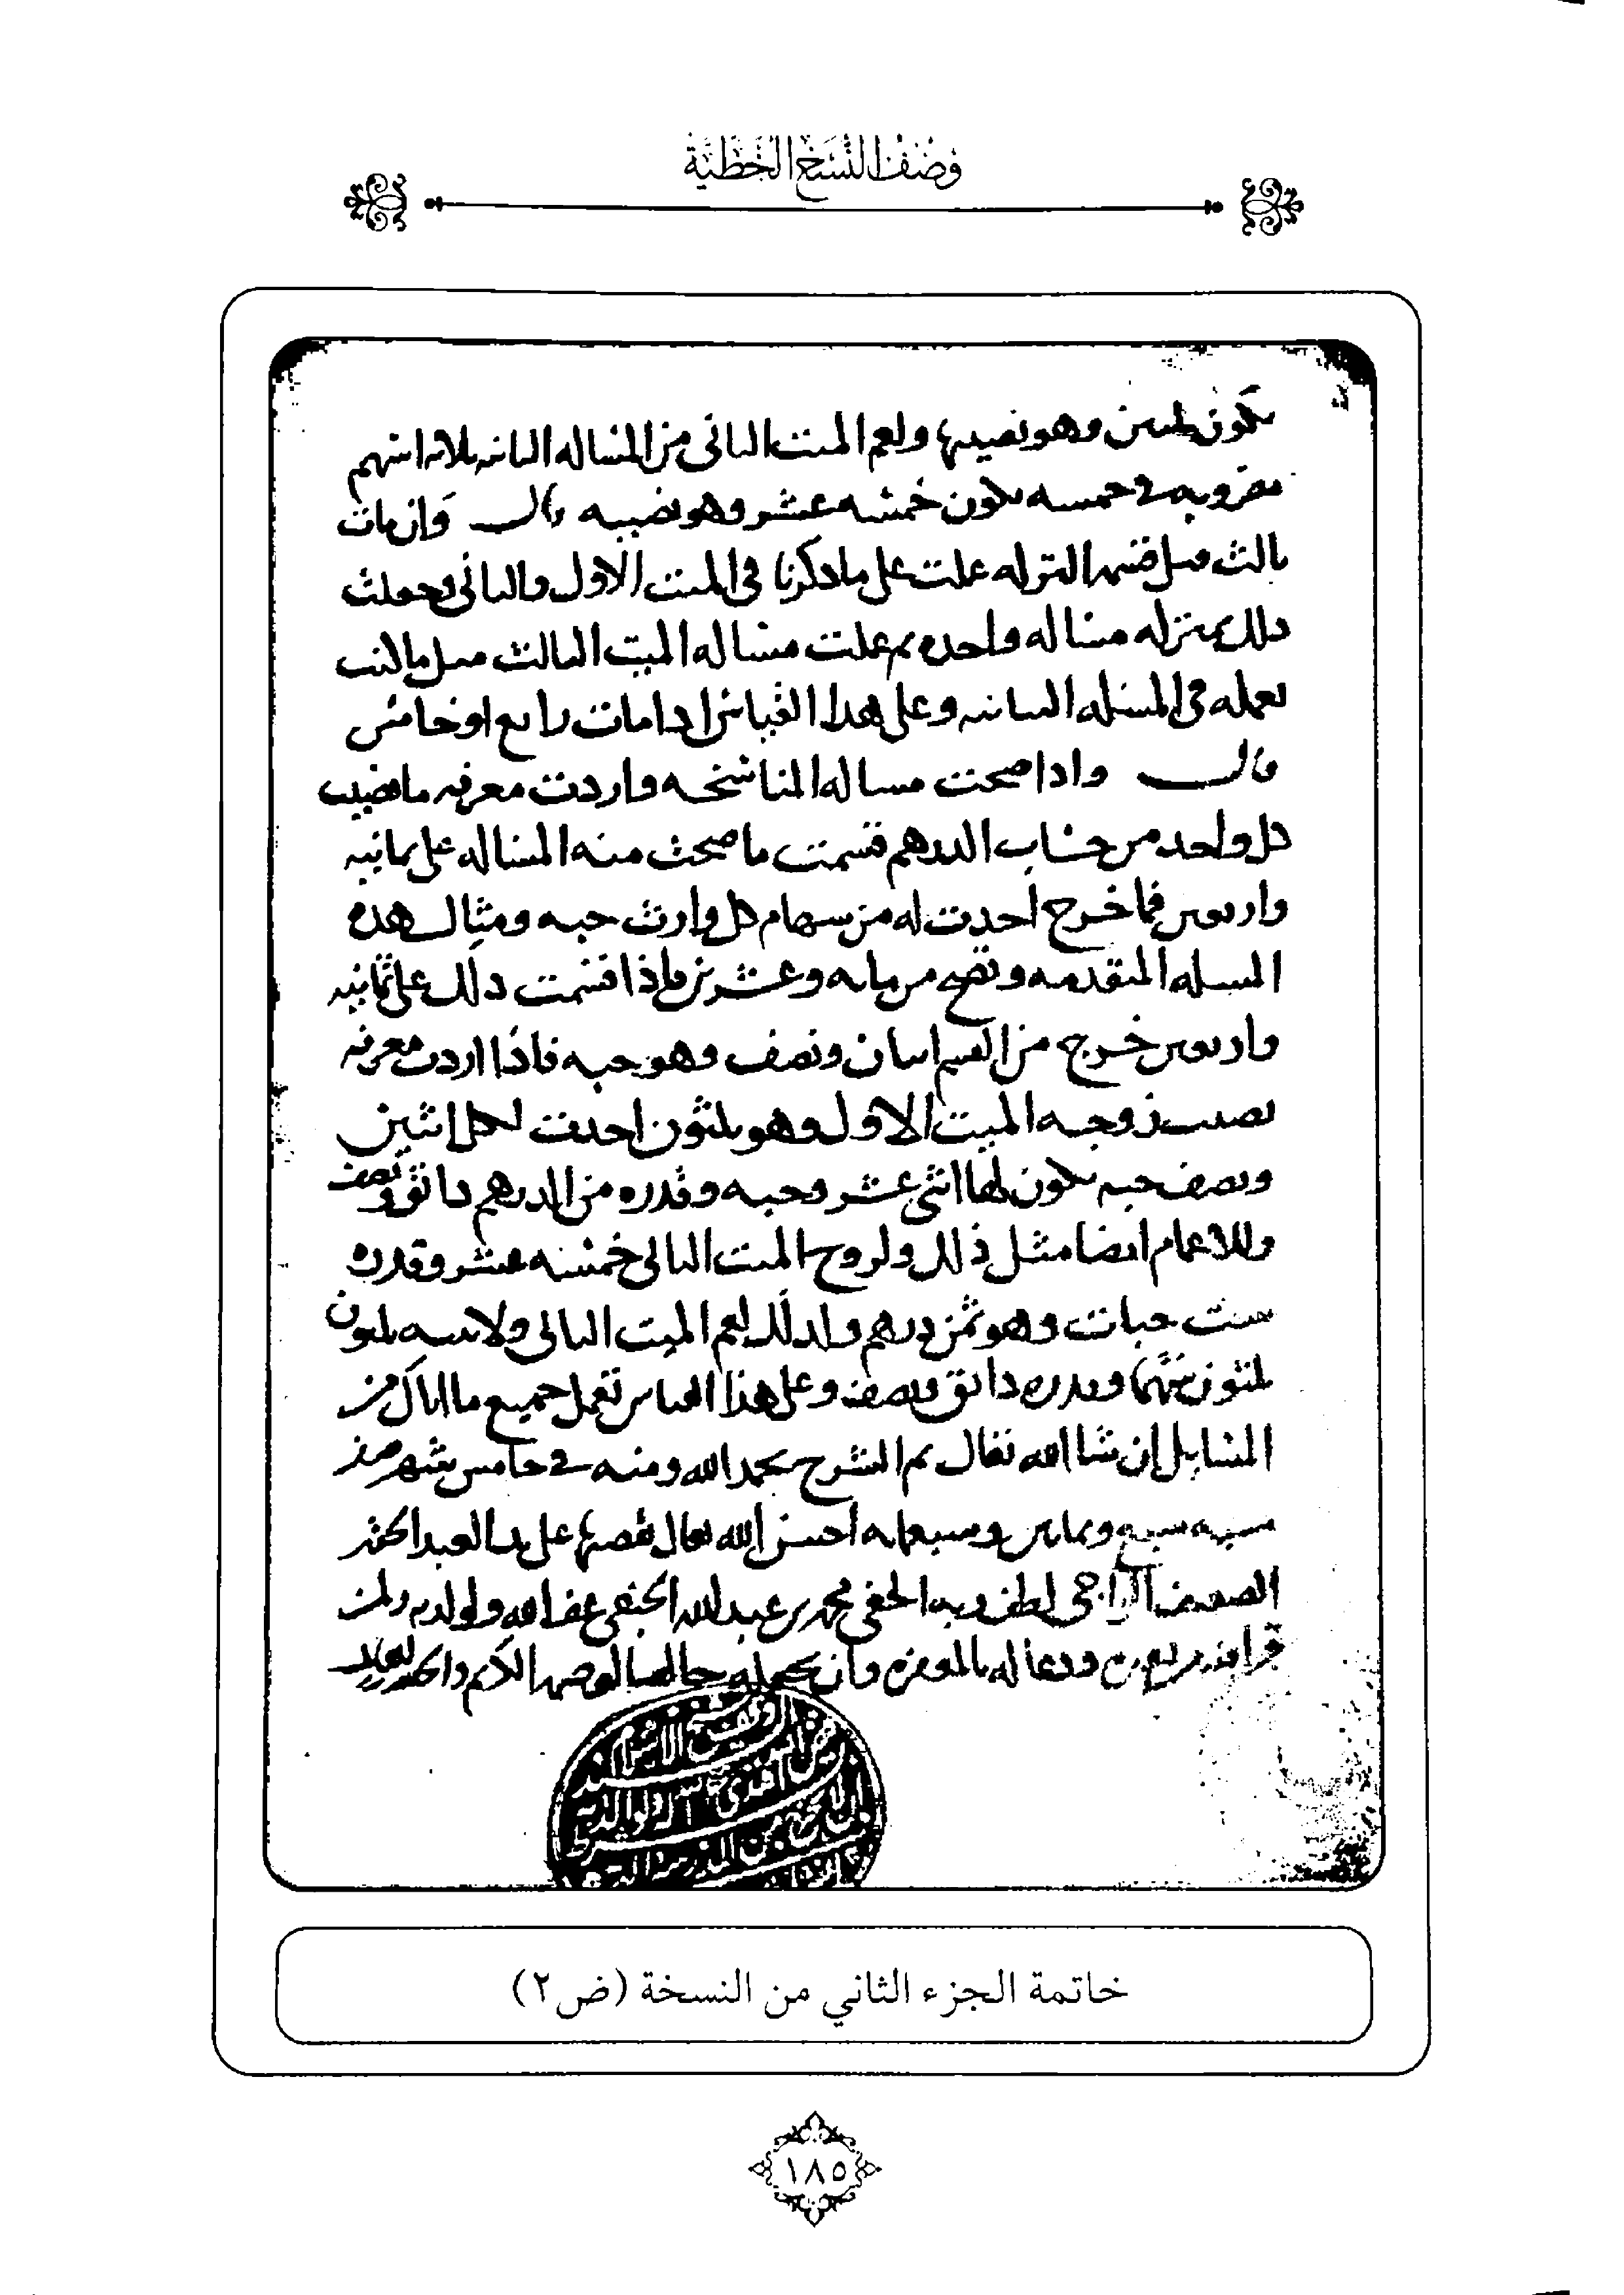 وصف النسخ الخطية
تكون ثلثين وهو نصيبها ولعم الميت الثاني من المساله الثانيه ثلاثه اسهم
مضروبه في خمسه تكون خمسه عشر وهو نصيبه قال وان مات
ثالث قبل قسمه التركه عملت على ما ذكرنا في الميت الاول والثاني وجعلت
ذلك بمنزله مساله واحده ثم عملت مساله الميت الثالث مثل ما كنت
تعمله في المسله الثانيه وعلى هذا القياس اذا مات رابع او خامس
قال واذا صحت مساله المناسخه واردت معرفه ما نصيب
كل واحد من حساب الدرهم قسمت ما صحت منه المساله على ثمانيه
واربعين فما خرج اخذت له من سهام كل وارث حبه ومثال هذه
المسله المتقدمه وتصح من مايه وعشرين فاذا قسمت ذلك على ثمانيه
واربعين خرج من القسم اثنان ونصف وهو حبه فاذا اردت معرفه
نصيب زوجه الميت الاول وهو ثلثون اخذت لكل اثنين
ونصف حبه تكون لها اثنى عشر وحبه وقدره من الدرهم دانق ونصف
وللاعمام ايضا مثل ذلك ولزوج الميت الثاني خمسه عشر وقدره
ست حبات وهو ثمن درهم وكذلك لعم الميت الثاني ولابنته ثلثون
ثلثون سهما وقدره دانق ونصف وعلى هذا القياس تعمل جميع ما اتاك من
المسايل ان شا الله تعالى تم الشرح بحمد الله ومنه في خامس شهر صفر
سنه سبع وثمانين وسبعمايه احسن الله تعالى تقضيها على يد العبد
الضعيف الراجي لطف ربه الخفي محمد بن عبد الله الحنفي عفا الله ولوالديه ولمن
قرا فيه ودعا له بالمغفره وان يجعله خالصا لوجهه الكريم والحمد لله
خاتمة الجزء الثاني من النسخة (ض٢)
١٨٥